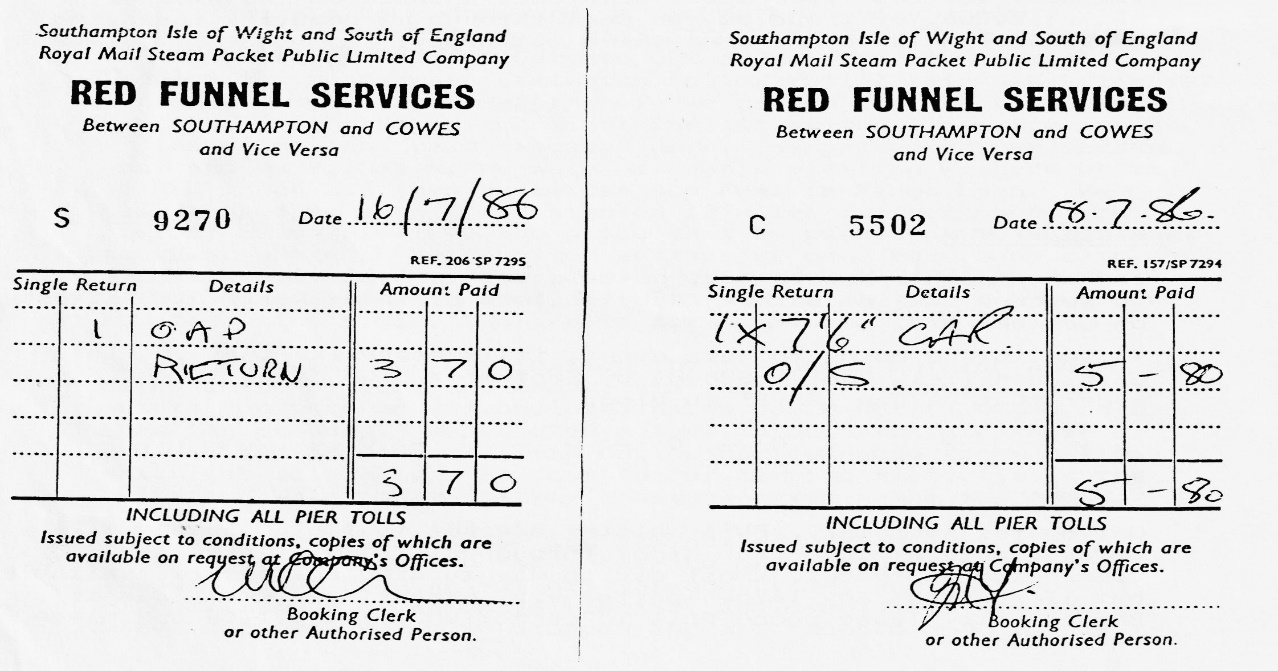 Southampton Isle of Wight and South of England
Royal Mail Steam Packet Public Limited Company
RED FUNNEL SERVICES
Between SOUTHAMPTON and COWES
and Vice Versa
S 9270 Date 16/7/86
REF. 206 SP 7295
Single Return Details Amount Paid
1 OAP
RETURN 3 7 0
3 7 0
INCLUDING ALL PIER TOLLS
Issued subject to conditions, copies of which are
available on request at Company's Offices.
Booking Clerk
or other Authorised Person.
Southampton Isle of Wight and South of England
Royal Mail Steam Packet Public Limited Company
RED FUNNEL SERVICES
Between SOUTHAMPTON and COWES
and Vice Versa
C 5502 Date 18.7.86.
REF. 157/SP 7294
Single Return Details Amount Paid
1 X 7'6" CAR.
O/S. 5 - 80
5 - 80
INCLUDING ALL PIER TOLLS
Issued subject to conditions, copies of which are
available on request at Company's Offices.
Booking Clerk
or other Authorised Person.